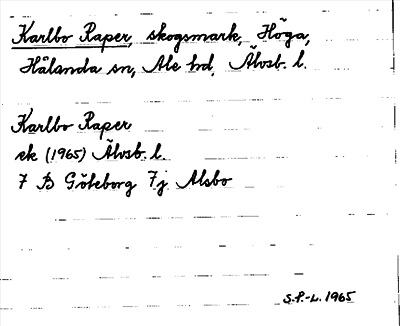 Karlbo Raper, skogsmark, Höga,
Hålanda sn, Ale hd, Älvsb. l.
Karlbo Raper
ek (1965) Älvsb. l.
7 B Göteborg 7j Alsbo
S.P.-L. 1965